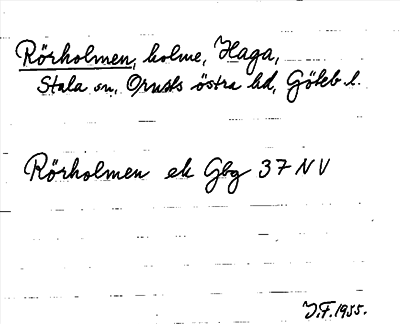 Rörholmen, holme, Haga,
Stala sn, Orusts östra hd, Göteb l.
Rörholmen ek Gbg 37 NV
J.F. 1955.